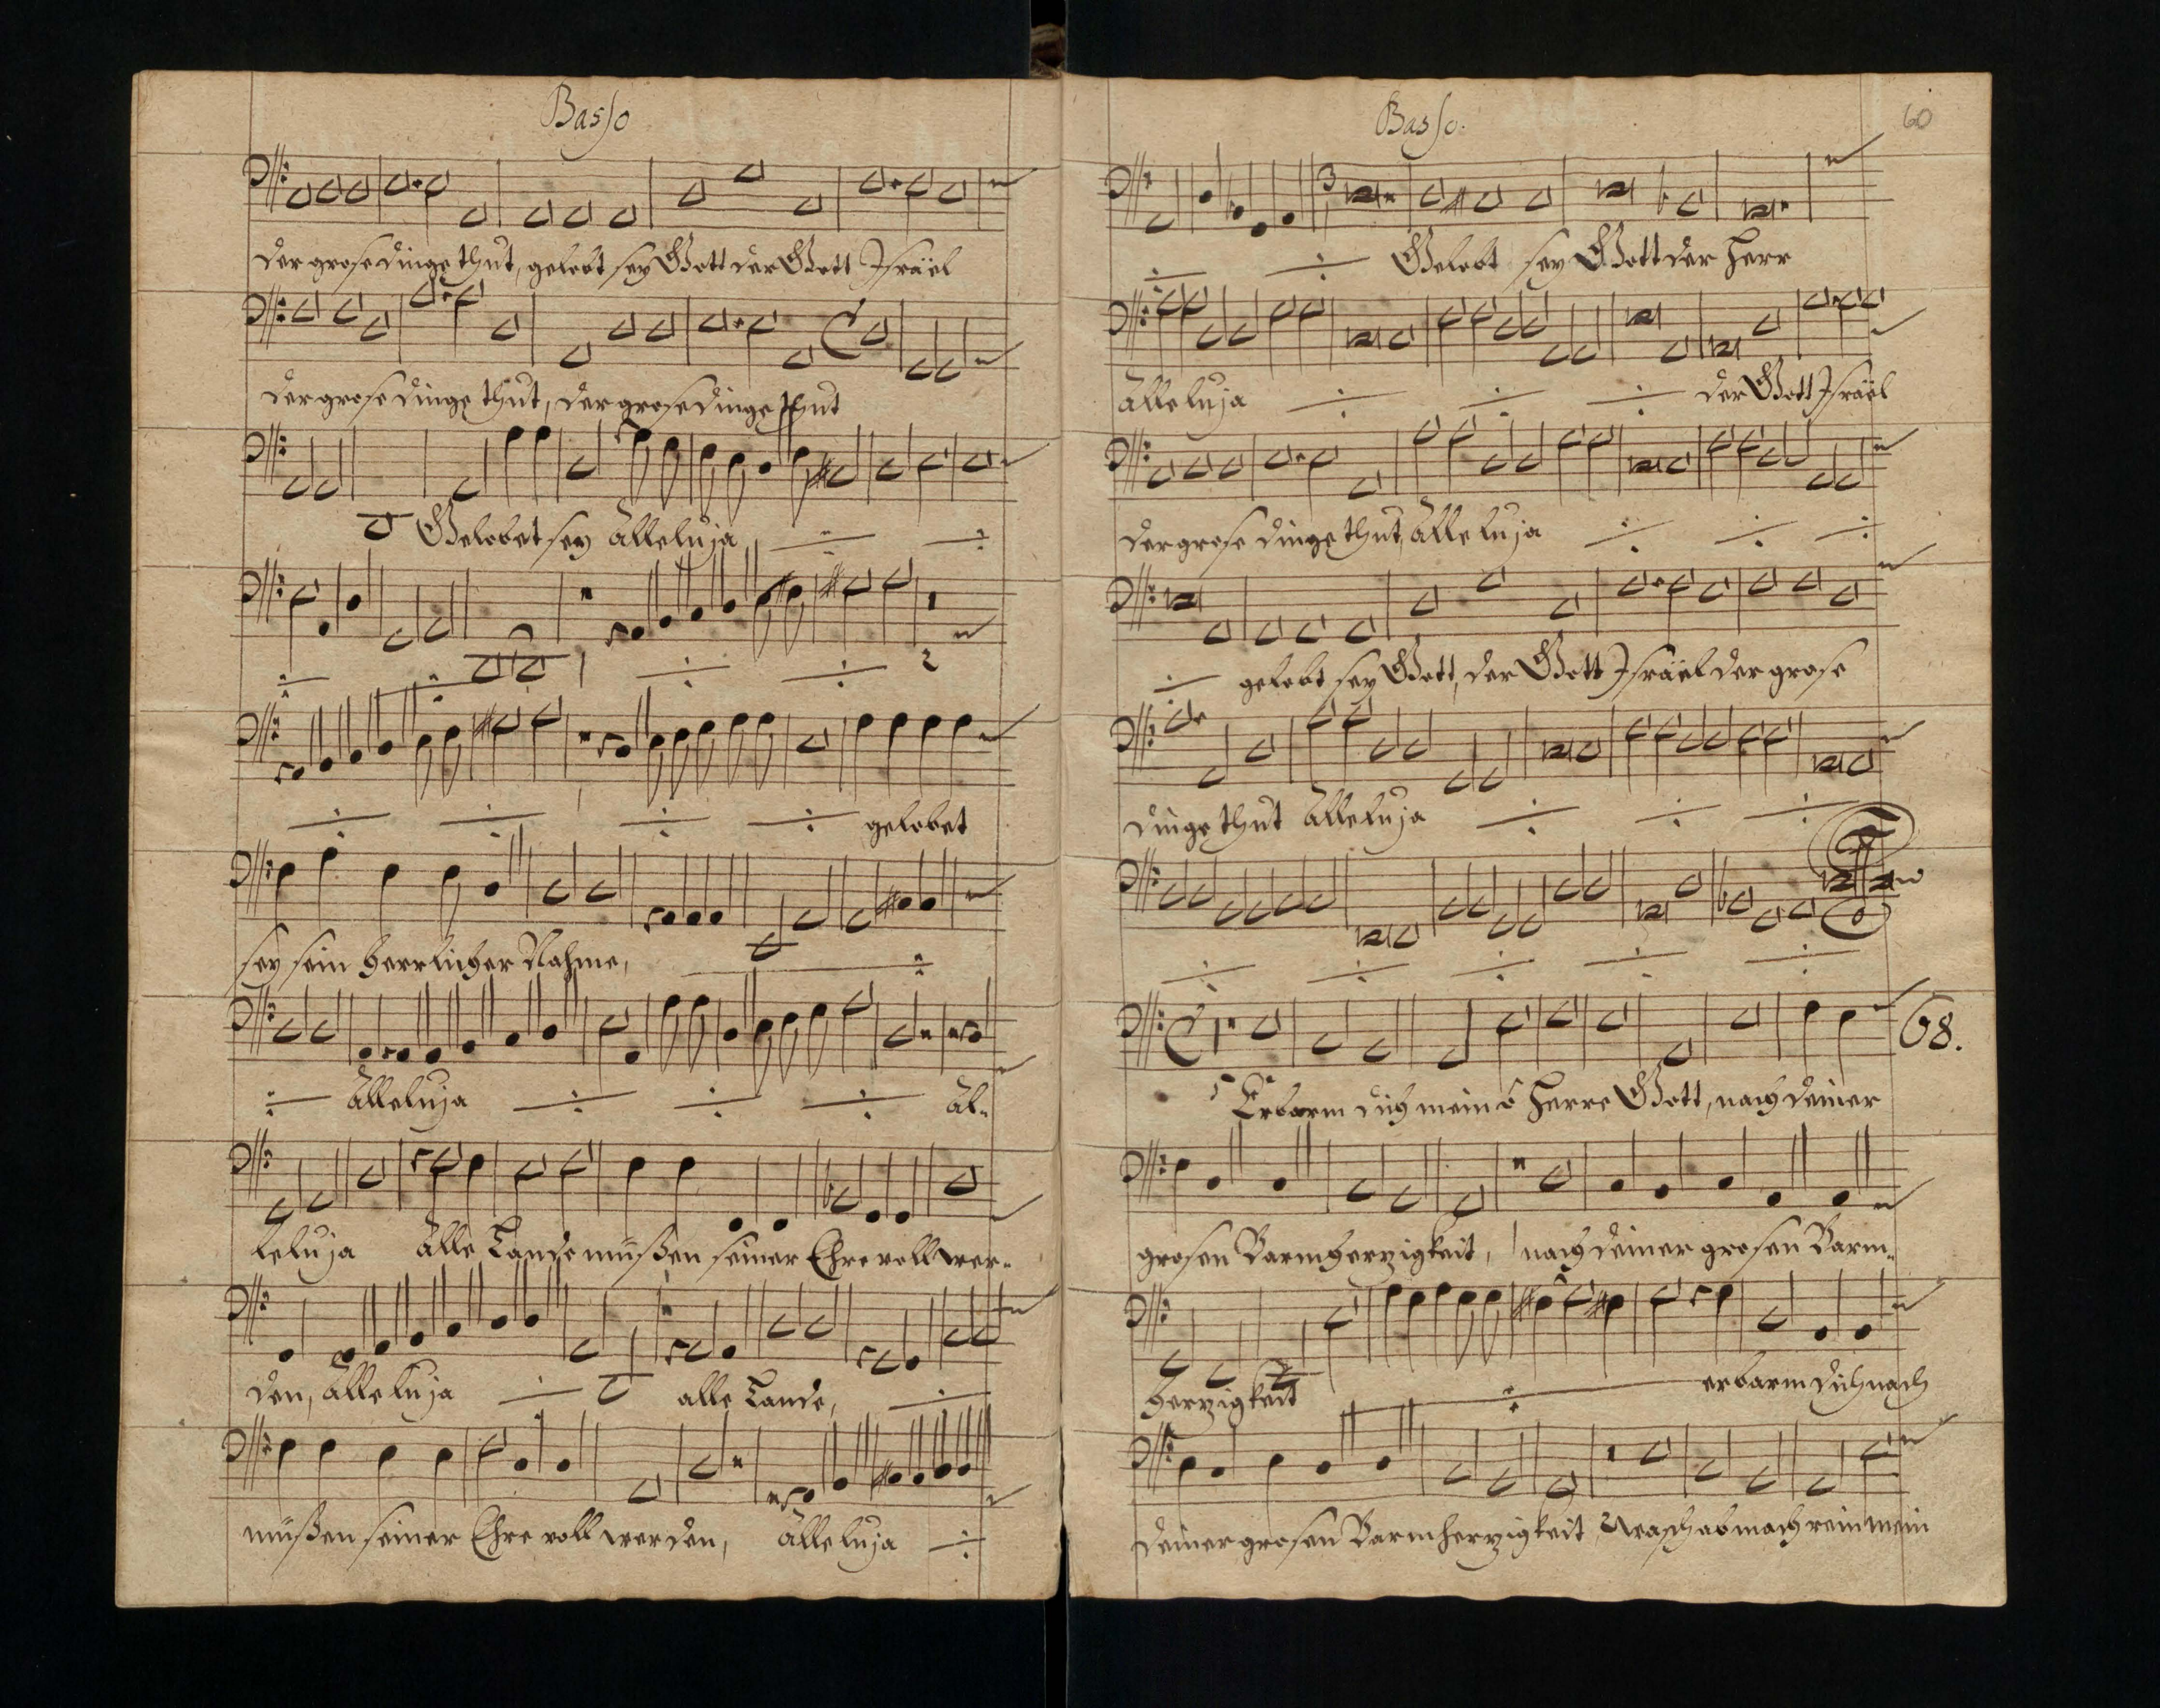 Basso
der grose dinge thut, gelobt sey Gott der Gott Israël
der grose dinge thut, der grose dinge thut
Gelobet sey Alleluja
gelobet
sey sein herrlicher Nahme,
Alleluja Al-
leluja Alle Lande müßen seiner Ehre voll wer-
den, Alleluja alle Lande,
müßen seiner Ehre voll werden, Alleluja
Basso.
60
3
Gelobt sey Gott der Herr
Alleluja der Gott Israël
der grose dinge thut, Alleluja
gelobt sey Gott, der Gott Israël der grose
dinge thut Alleluja
68.
Erbarm dich mein ô Herre Gott, nach deiner
grosen Barmherzigkeit, nach deiner grosen Barm-
herzigkeit erbarm dich nach
deiner grosen Barmherzigkeit Wasch ab mach rein mein